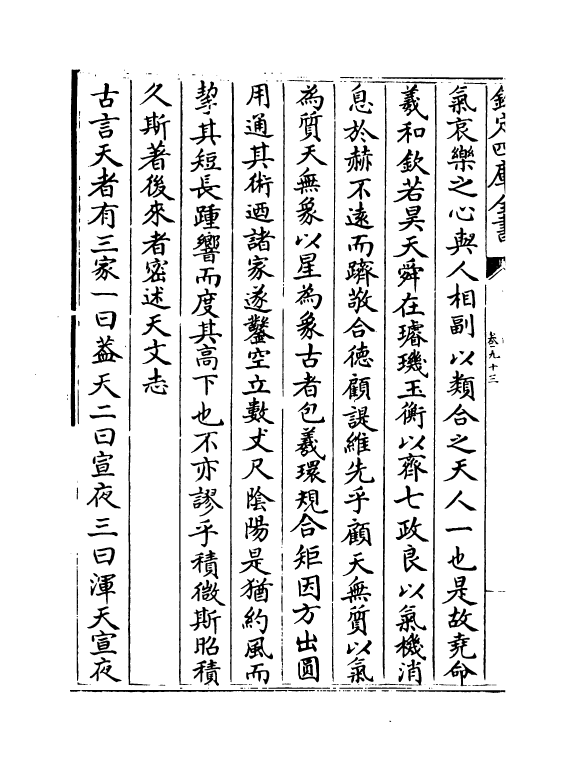 欽定四庫全書
卷九十三
氣哀樂之心與人相副以類合之天人一也是故堯命
羲和欽若昊天舜在璿璣玉衡以齊七政良以氣機消
息於赫不遠而躋敬合德顧諟維先乎顧天無質以氣
為質天無象以星為象古者包羲環規合矩因方出圓
用通其術迺諸家遂鑿空立數丈尺陰陽是猶約風而
挈其短長踵響而度其高下也不亦謬乎積微斯昭積
久斯著後來者密述天文志
古言天者有三家一曰葢天二曰宣夜三曰渾天宣夜